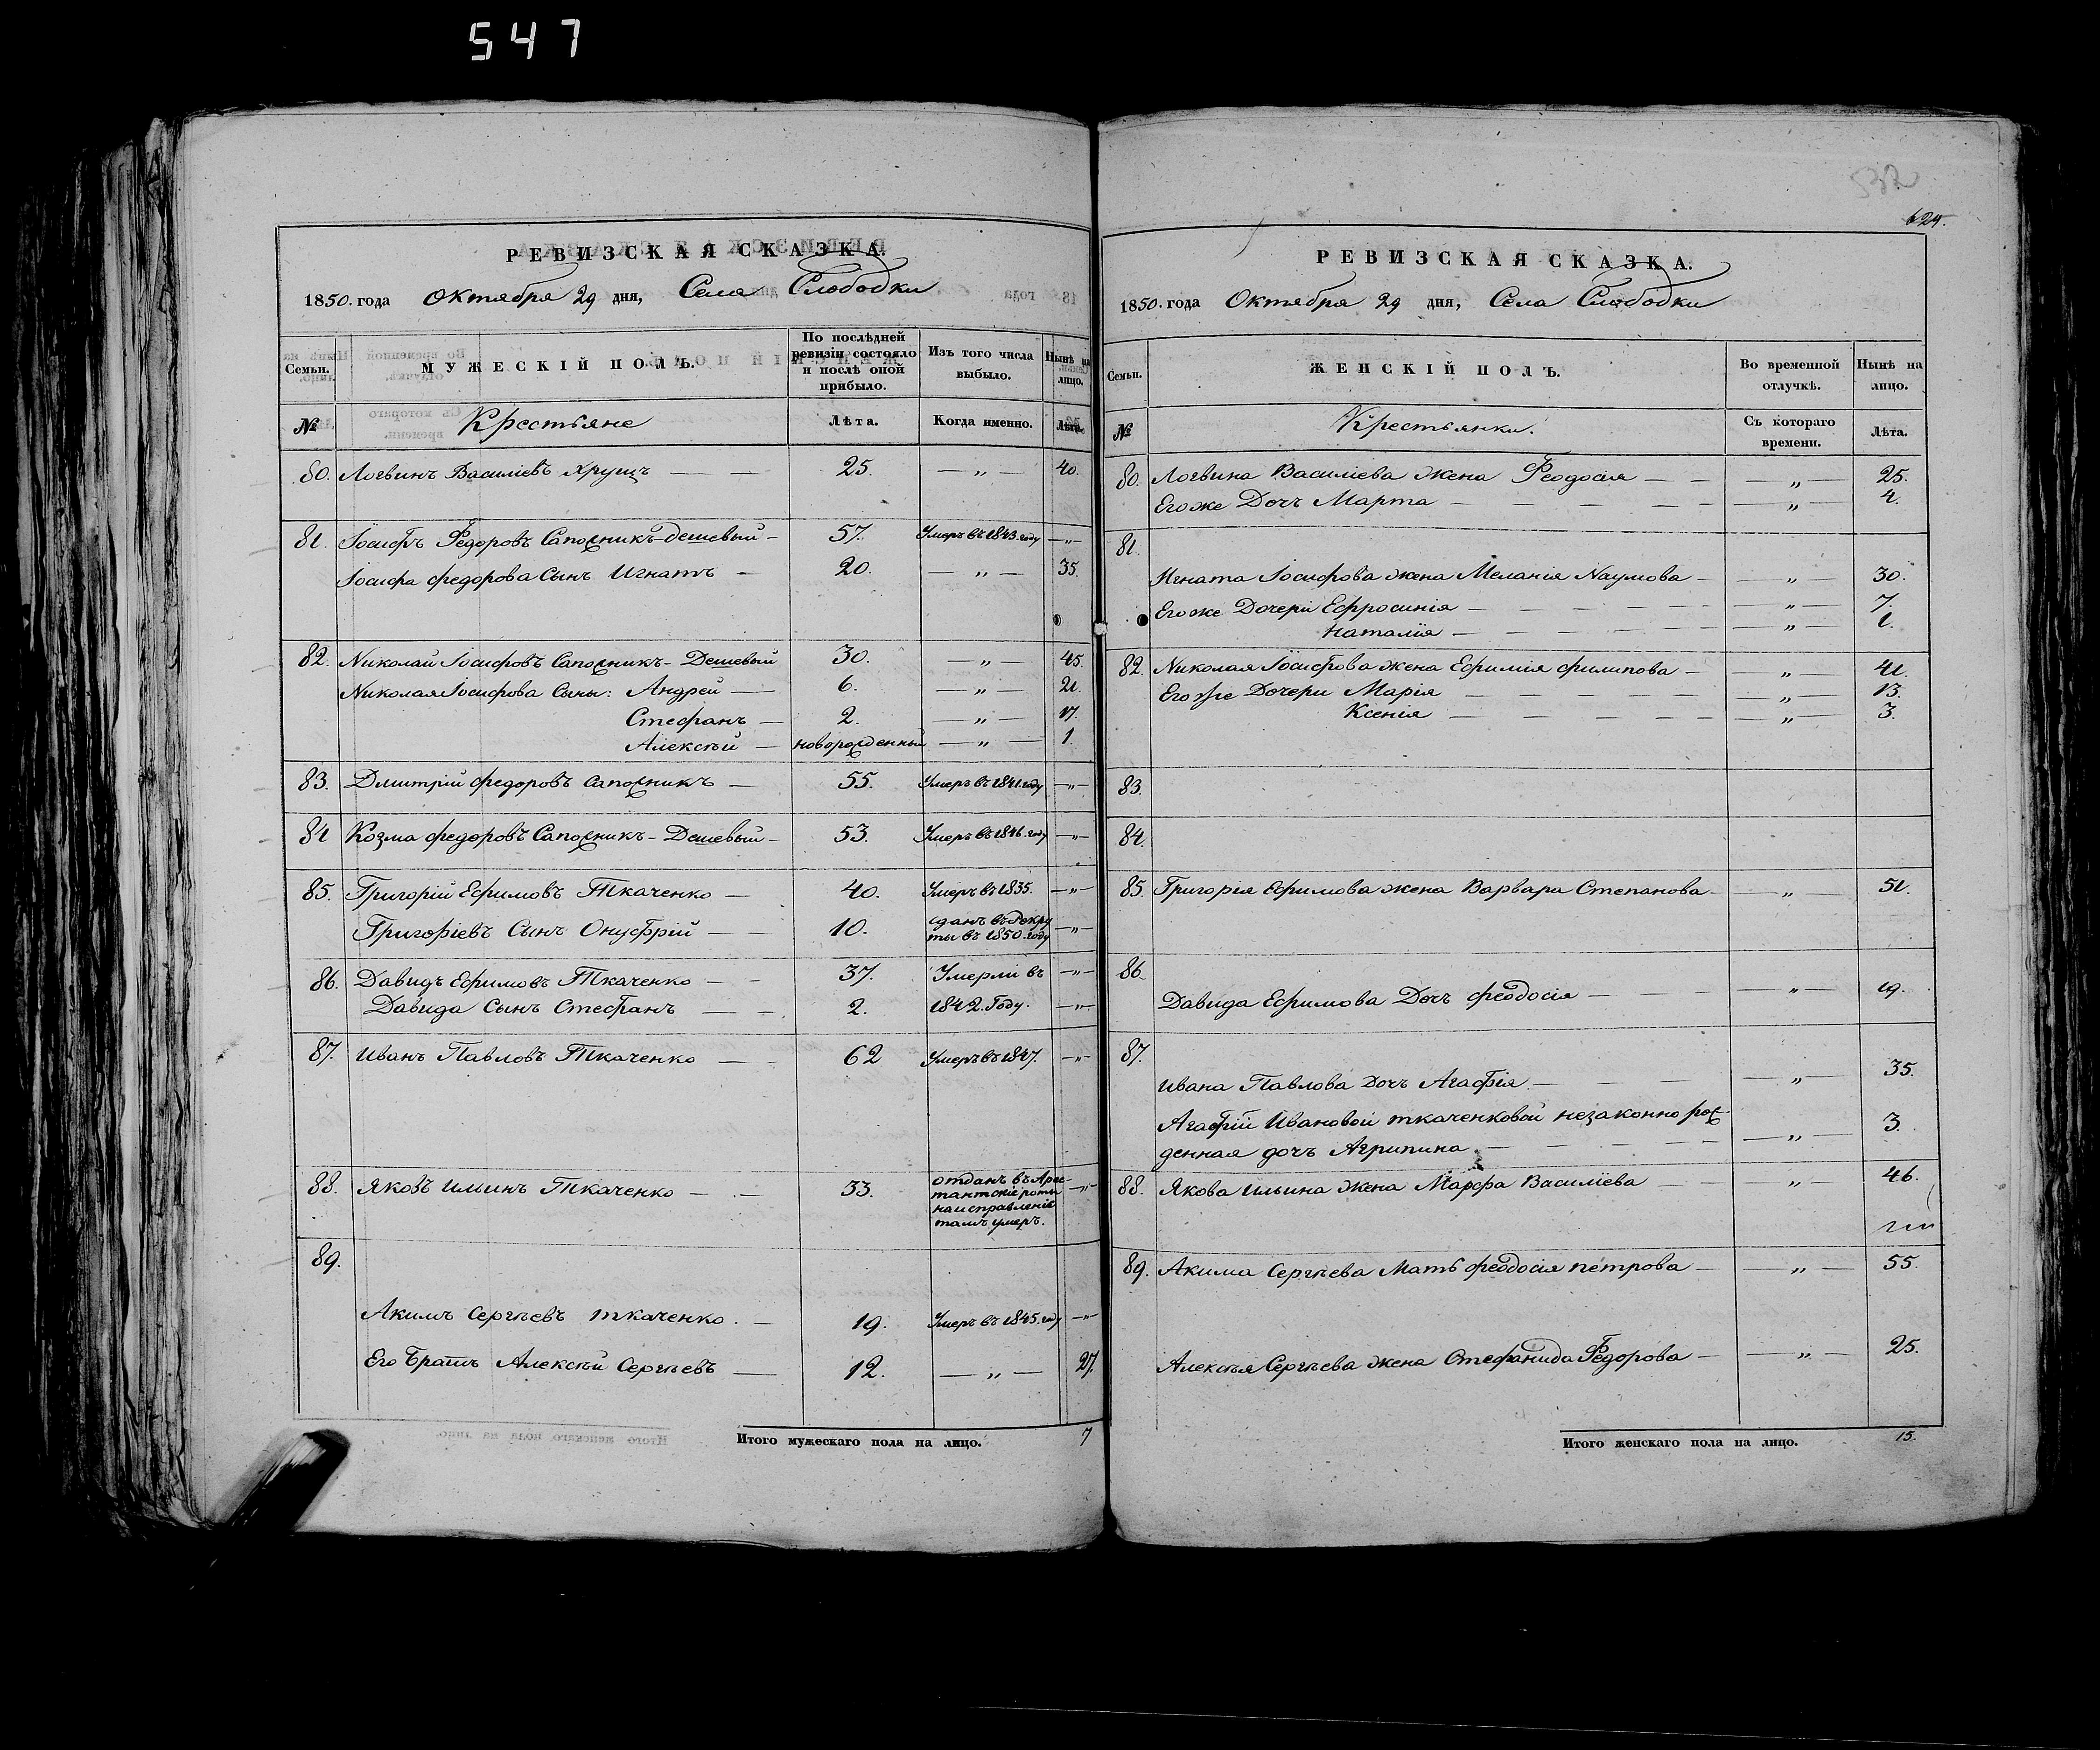 547
РЕВИЗСКАЯ СКАЗКА.
1850. года Октября 29 дня, Села Слободки
Семьи.
МУЖЕСКІЙ ПОЛЪ.
По послѣдней ревизіи состояло и послѣ оной прибыло.
Изъ того числа выбыло.
Нынѣ на лицо.
№
Крестьяне
Лѣта.
Когда именно.
Лѣта.
80. Логвинъ Василіевъ Хрущъ — — 25. — „ — 40.
81. Іосифъ Федоровъ Сапожникъ-Дешевый - 57. Умеръ въ 1843. году — „ —
Іосифа Федорова Сынъ Игнатъ — 20. — „ — 35.
82. Николай Іосифовъ Сапожникъ-Дешевый 30. — „ — 45.
Николая Іосифова Сыны: Андрей — 6. — „ — 21.
Стефанъ — 2. — „ — 17.
Алексѣй — новорожденный — „ — 1.
83. Дмитрій Федоровъ Сапожникъ — 55. Умеръ въ 1841. году — „ —
84 Козма Федоровъ Сапожникъ-Дешевый - 53. Умеръ въ 1846. году — „ —
85. Григорій Ефимовъ Ткаченко — 40. Умеръ въ 1835. — „ —
Григоріевъ Сынъ Онуфрій — — 10. сданъ въ Рекру
ты въ 1850. году — „ —
86. Давидъ Ефимовъ Ткаченко — — 37. Умерли въ — „ —
Давида Сынъ Стефанъ — — 2. 1842. Году. — „ —
87. Иванъ Павловъ Ткаченко — — 62 Умеръ въ 1847. — „ —
88. Яковъ Ильинъ Ткаченко — — 33. отданъ въ Арес-
тантскіе роты
на исправленіе
тамъ умеръ. — „ —
89.
Акимъ Сергѣевъ Ткаченко. — 19. Умеръ въ 1845. году — „ —
Его Братъ Алексѣй Сергѣевъ — 12. — „ — 27.
Итого мужескаго пола на лицо. 7
532
624.
РЕВИЗСКАЯ СКАЗКА.
1850. года Октября 29 дня, Села Слободки
Семьи.
ЖЕНСКІЙ ПОЛЪ.
Во временной отлучкѣ.
Нынѣ на лицо.
№
Крестьянки.
Съ котораго времени.
Лѣта.
80. Логвина Василіева жена Феодосія — — — „ — 25.
Егоже Дочь Марта — — — — — — „ — 4.
81.
Игната Іосифова жена Меланія Наумова — — „ — 30.
Егоже Дочери Ефросинія — — — — — — „ — 7.
Наталія — — — — — — „ — 1.
82. Николая Іосифова жена Ефимія Филипова — — „ — 41.
Егоже Дочери Марія — — — — — „ — 13.
Ксенія — — — — — — „ — 3.
83.
84.
85. Григорія Ефимова жена Варвара Степанова — — „ — 51.
86.
Давида Ефимова Дочь Феодосія — — — „ — 19.
87.
Ивана Павлова Дочь Агафія — — — — „ — 35.
Агафій Ивановой Ткаченковой незаконно рож-
денная дочь Агрипина — — — — — — „ — 3.
88. Якова Ильина Жена Марфа Василіева — — „ — 46.
89. Акима Сергѣева Мать Феодосія Петрова — — „ — 55.
Алексѣя Сергѣева жена Стефанида Федорова — — „ — 25.
Итого женскаго пола на лицо. 15.